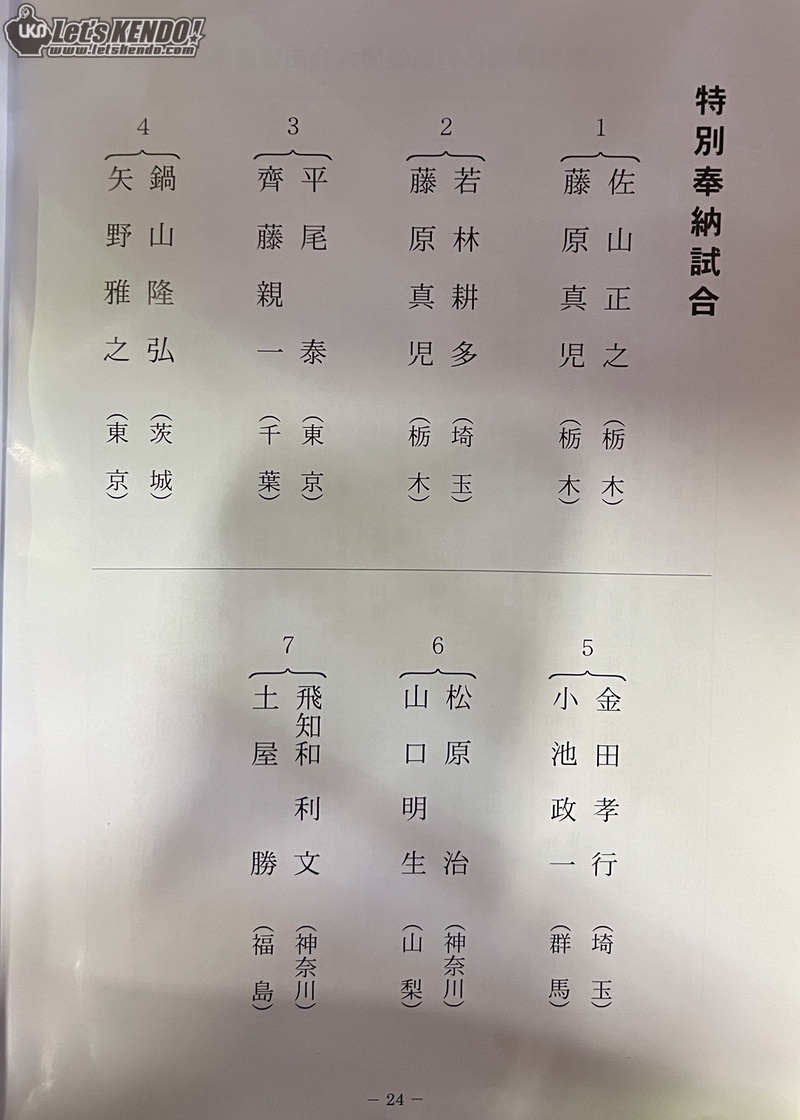 UKn Let'sKENDO!
www.letskendo.com
特別奉納試合
1
佐山正之（栃木）
藤原真児（栃木）
2
若林耕多（埼玉）
藤原真児（栃木）
3
平尾　泰（東京）
齊藤親一（千葉）
4
鍋山隆弘（茨城）
矢野雅之（東京）
5
金田孝行（埼玉）
小池政一（群馬）
6
松原　治（神奈川）
山口明生（山梨）
7
飛知和利文（神奈川）
土屋　勝（福島）
− 24 −